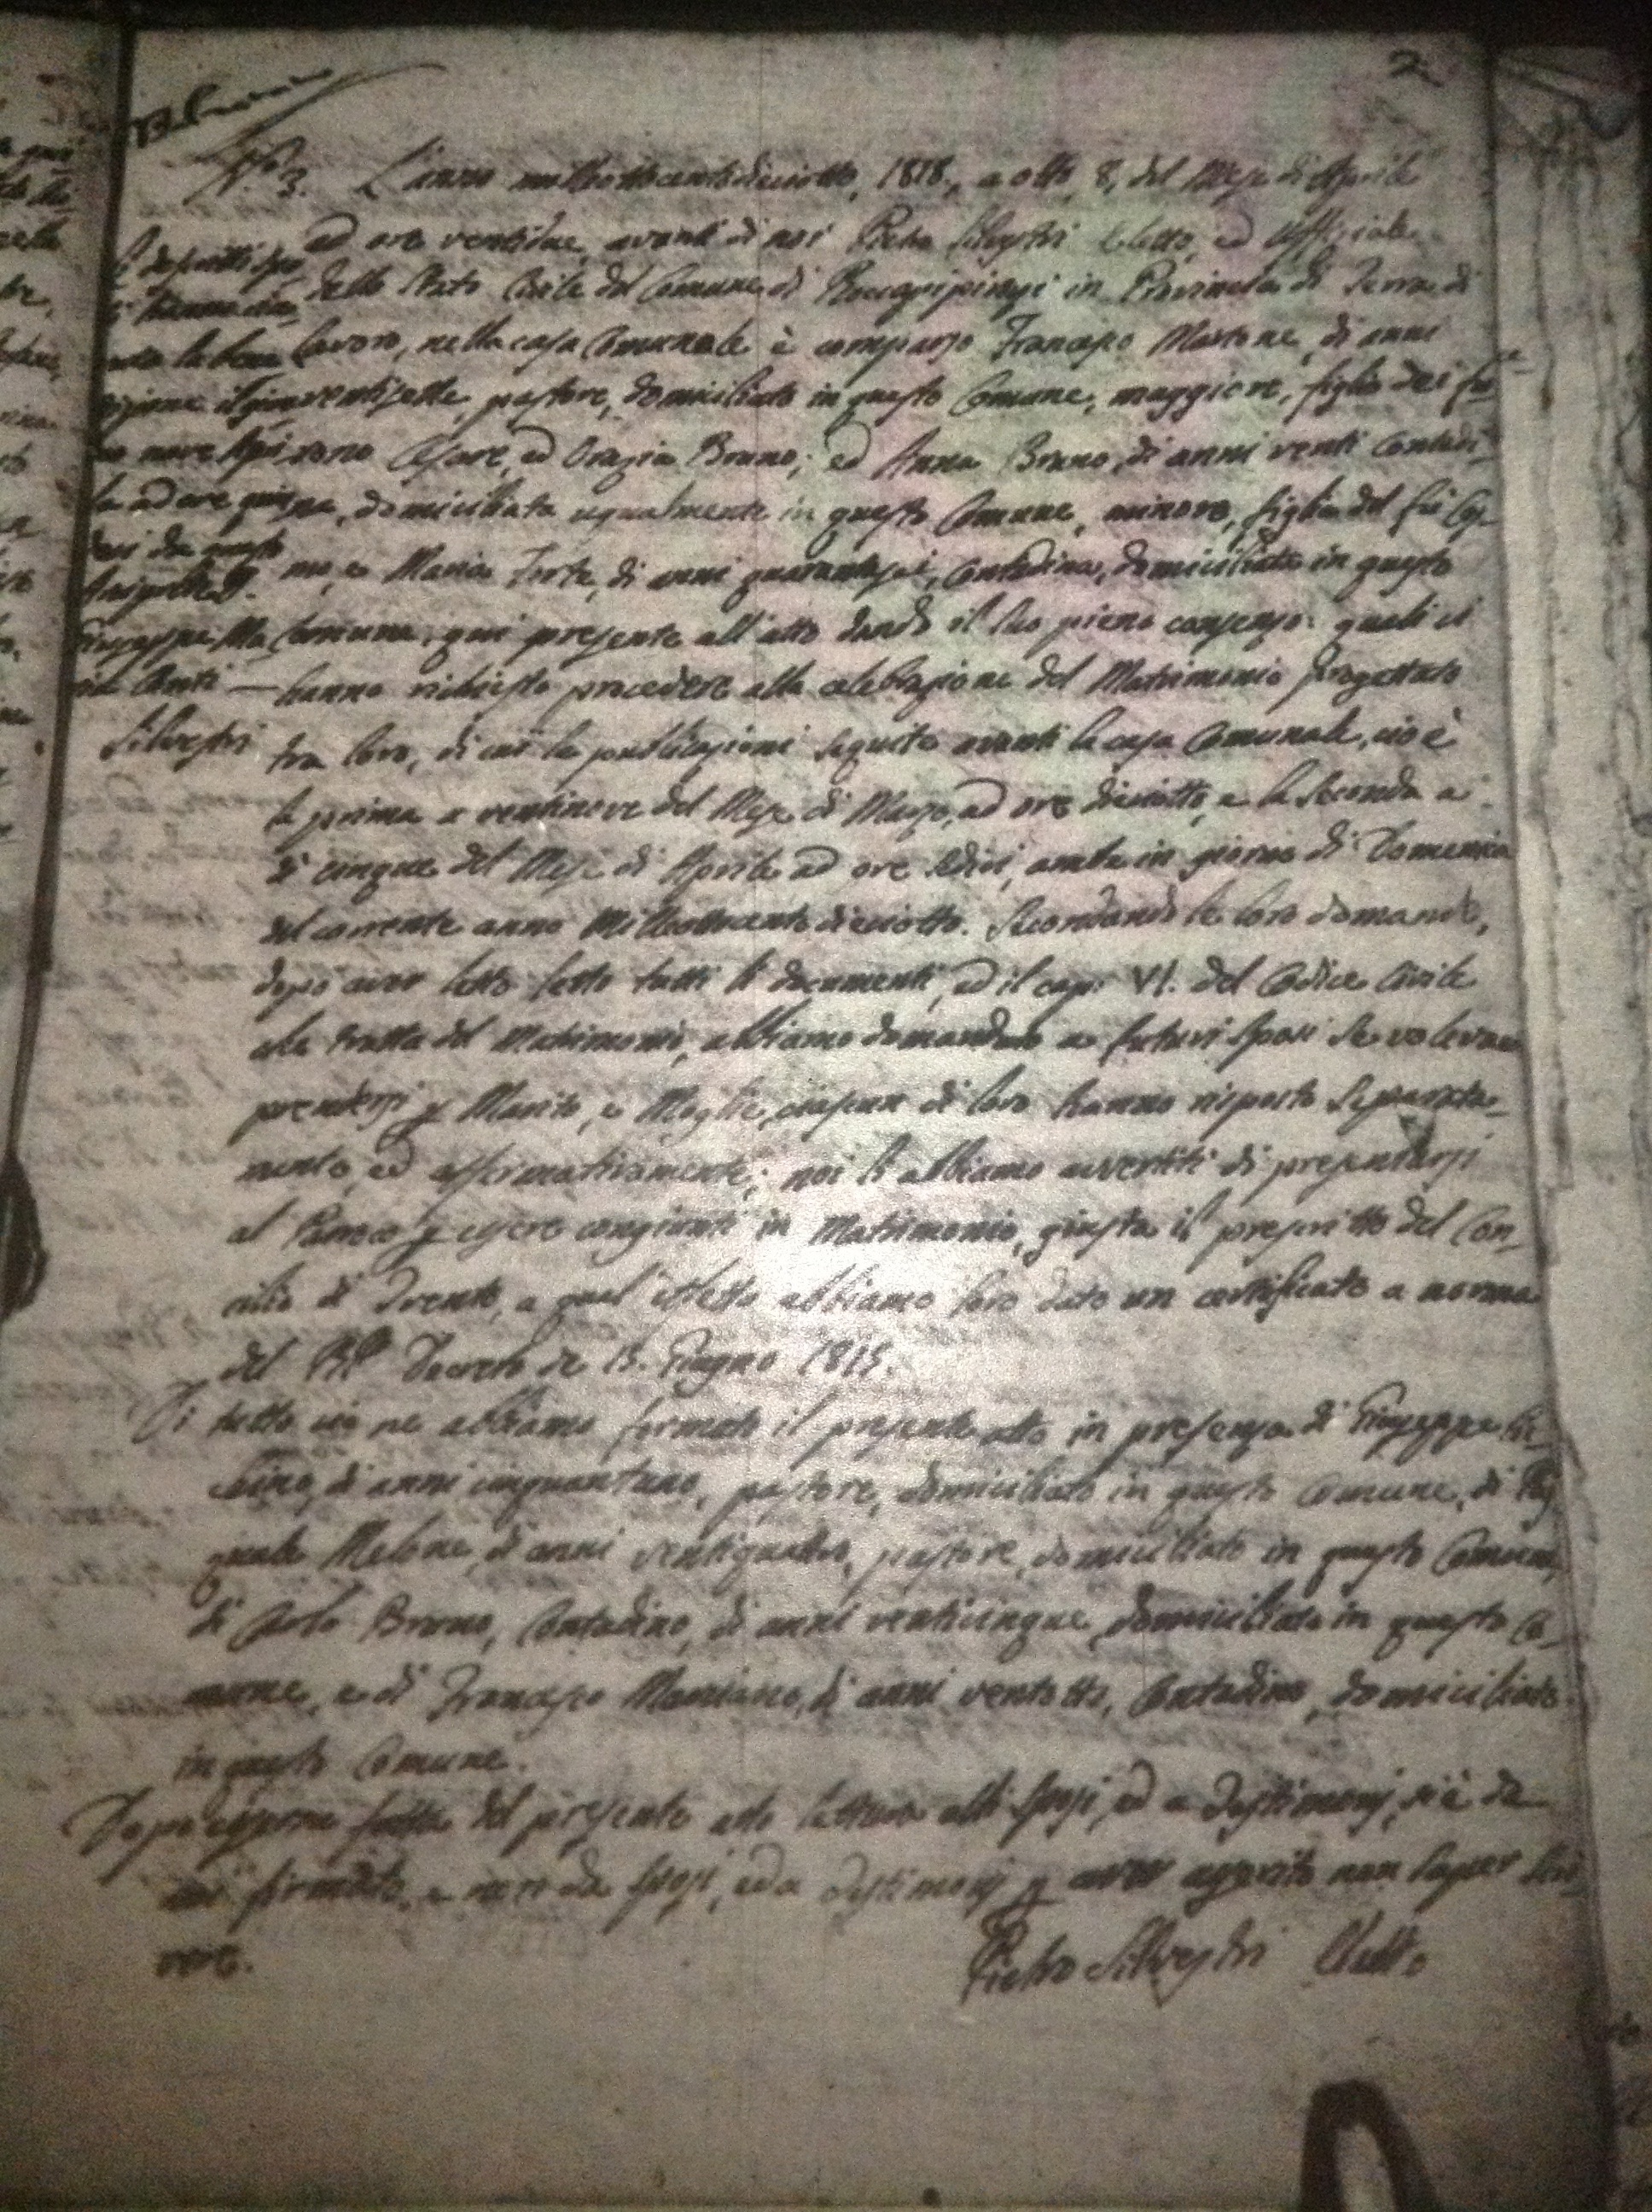 2
N.o 3. L'anno milleottocentodieciotto, 1818, a otto, 8, del Mese di Aprile
ad ore ventidue, avanti di noi Pietro Silvestri Eletto, ed Uffiziale
dello Stato Civile del Comune di Roccapipirozzi in Provincia di Terra di
Lavoro, nella casa Comunale è comparso Francesco Mastone, di anni
ventisette, pastore, domiciliato in questo Comune, maggiore, figlio dei fu
Cesare, ed Orazia Bruno; ed Anna Bruno, di anni venti Contadi-
na, domiciliata ugualmente in questo Comune, minore, figlia del fù
mo, e Maria Forte, di anni quarantasei, Contadina, domiciliata in questo
Comune, qui presente all'atto dando il suo pieno consenso: quali ci
hanno richiesto procedere alla celebrazione del Matrimonio progettato
tra loro, di cui le pubblicazioni seguite avanti la casa Comunale, cioè
la prima a ventinove del Mese di Marzo, ad ore dieciotto, e la Seconda a
di cinque del Mese di Aprile ad ore sedici, ambe in giorno di Domenica
del corrente anno Milleottocento dieciotto. Secondando le loro domande,
dopo aver letto letto tutti li documenti, ed il cap: VI. del Codice Civile
che tratta del Matrimonio, abbiamo domandato a futuri Sposi se volevano
prendersi p Marito, e Moglie, ciascun di loro hanno risposto Separata-
mente, ed affirmativamente; noi li abbiamo avvertiti di presentarsi
al Parroco p essere congiunti in Matrimonio, giusta il prescritto del Con-
cilio di Trento, a qual effetto abbiamo loro dato un certificato a norma
del Rl Decreto de 13. Giugno 1815.
Di tutto ciò ne abbiamo formato il presente atto in presenza di Giuseppe
di anni cinquantuno, pastore, domiciliato in questo Comune, di Pas
quale Melone, di anni ventiquattro, pastore, domiciliato in questo Comune,
di Carlo Bruno, Contadino, di anni venticinque domiciliato in questo Co-
mune, e di Francesco di anni ventotto, Contadino, domiciliato
in questo Comune.
Dopo essersi fatta del presente atto lettura alli Sposi, ed a Testimonj, si è da
noi firmato, e non da Sposi, ed a Testimonj p aver asserito non saper Scri-
vere.
Pietro Silvestri Eletto
Silvestri